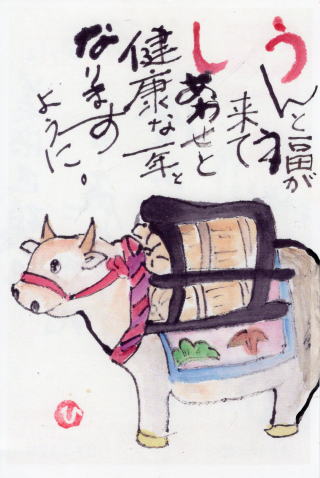 うんと福が
来て
しあわせと
健康な一年と
なります
ように。
ひ